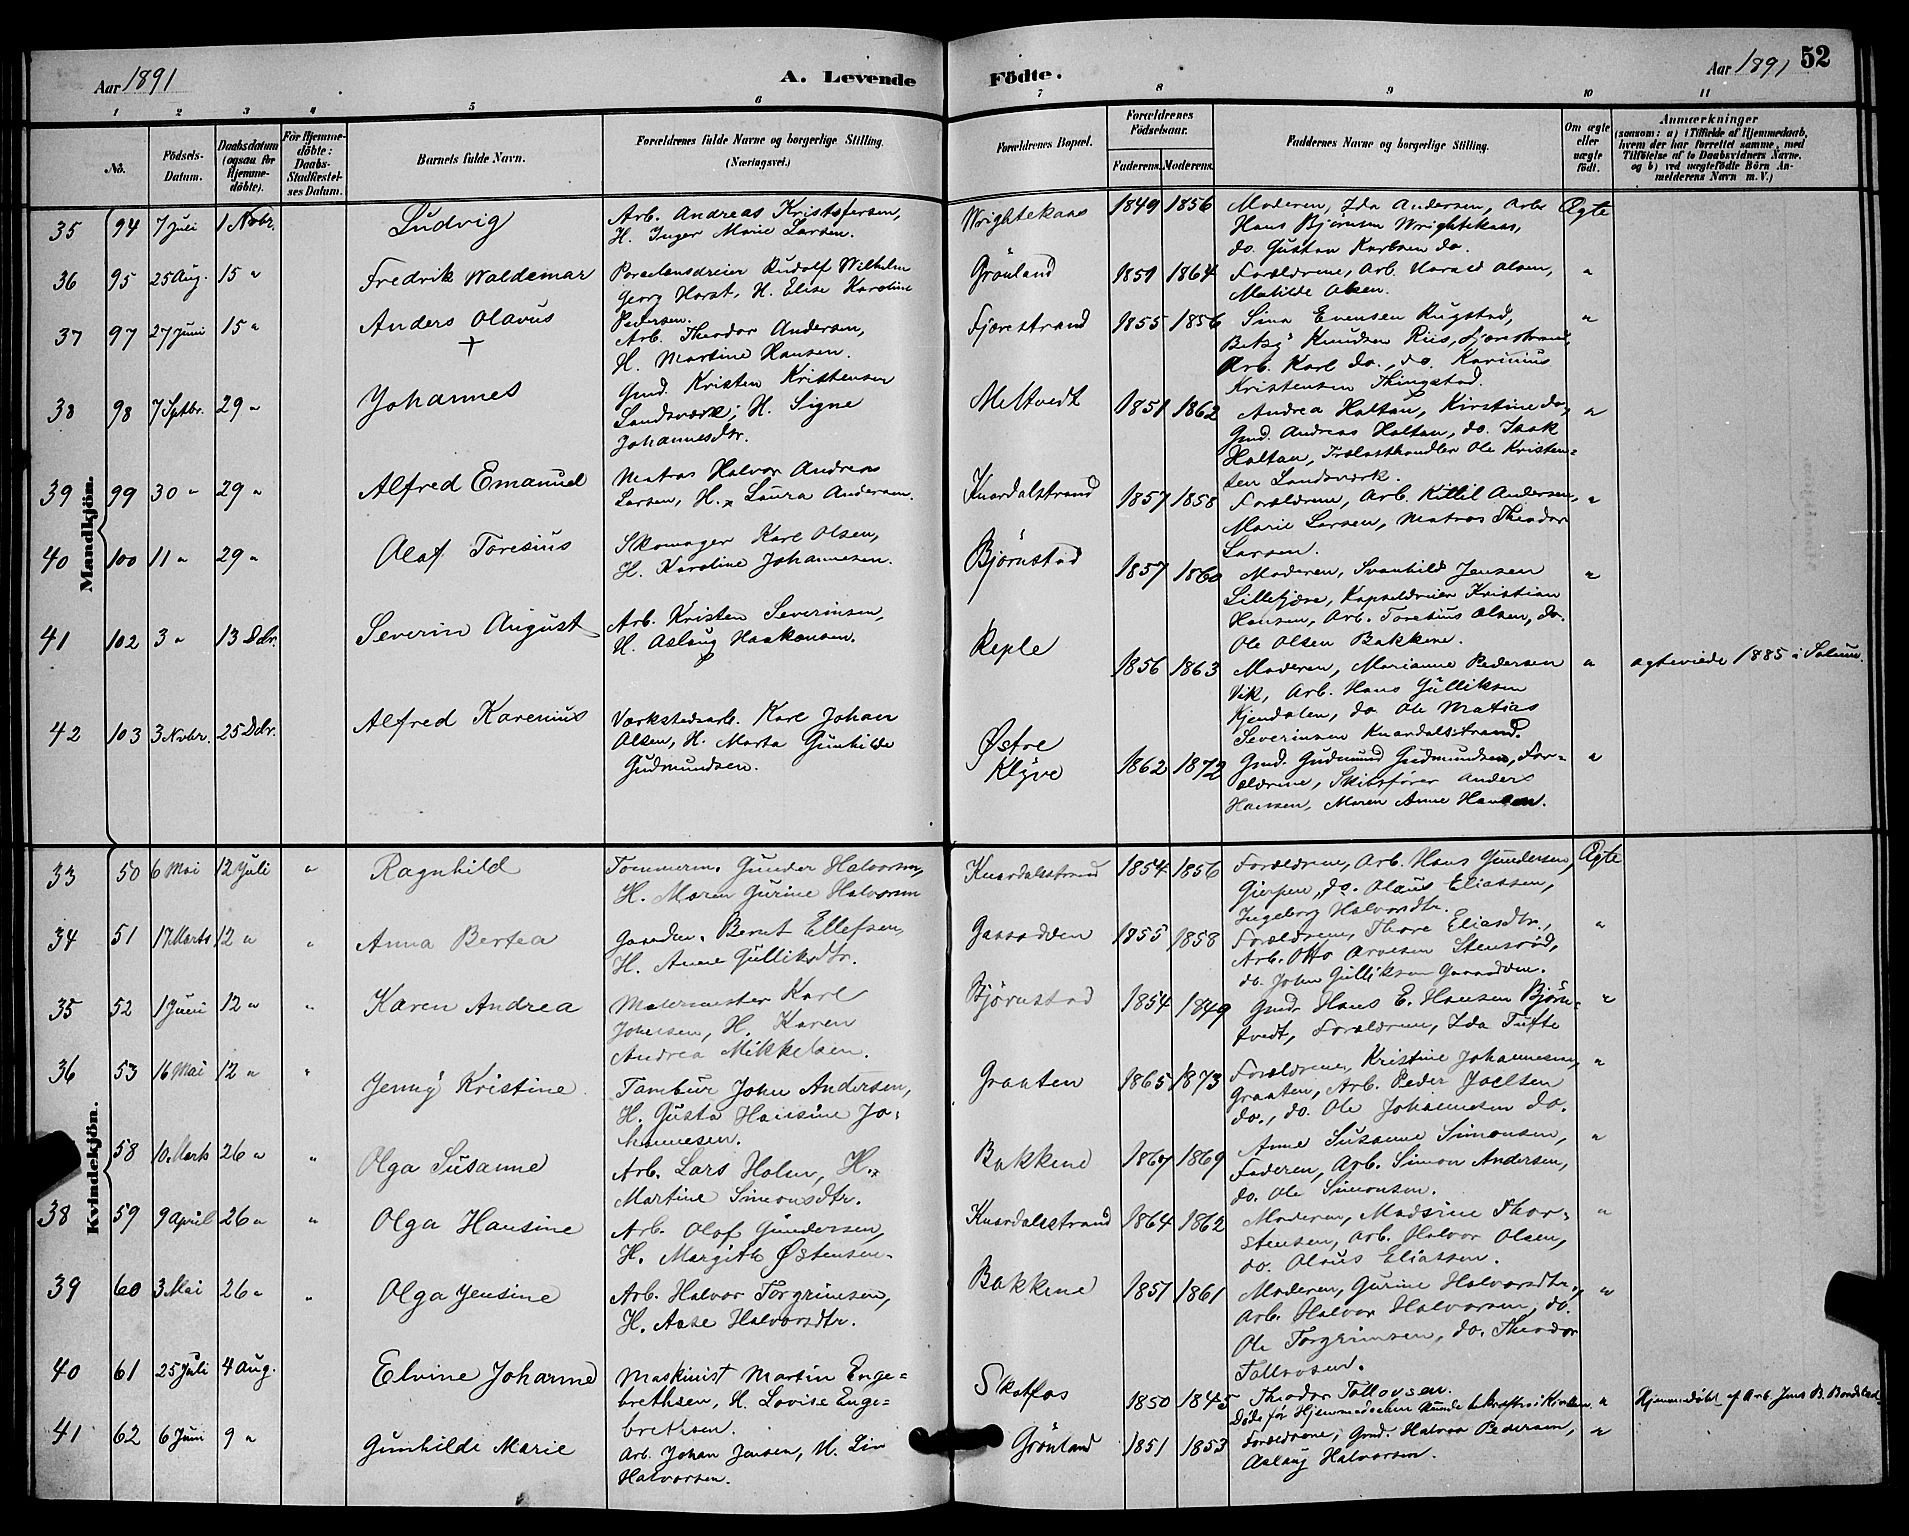 Aar 1891
A. Levende Födte.
Aar 1891
52
1 2 3 4 5 6 7 8 9 10 11
No.
Födsels-Datum.
Daabsdatum (ogsaa for Hjemmedöbte).
För Hjemmedöbte: Daabs-Stadfæstelses Datum.
Barnets fulde Navn.
Forældrenes fulde Navne og borgerlige Stilling. (Næringsvei.)
Forældrenes Bopæl.
Forældrenes Födselsaar.
Faderens. Moderens.
Faddernes Navne og borgerlige Stilling.
Om ægte eller uægte födt.
Anmærkninger
(saasom: a) i Tilfælde af Hjemmedaab, hvem der har forrettet samme, med Tilföielse af to Daabsvidners Navne, og b) ved uægtefödte Börn Anmelderens Navn m. V.)
Mandkjön.
35 94 7 Juli 1 Novbr. Ludvig
Arb. Andreas Kristofersen,
H. Inger Marie Larsen.
Wrightekaas 1849 1856
Moderen, Ida Andersen, Arb.
Hans Bjørnsen Wrightekaas,
do. Gustav Karlsen do.
Ægte
36 95 25 Aug. 15 " Fredrik Waldemar
Porcelænsdreier Rudolf Wilhelm
Georg Horst, H. Elise Karoline
Pedersen.
Grönland 1851 1864
Forældrene, Arb. Harald Olsen,
Matilde Olsen.
"
37 97 27 Juni 15 " Anders Olavus
+
Arb. Theodor Andersen,
H. Martine Hansen.
Fjærestrand 1855 1856
Sina Evensen Rugstad,
Betsy Knudsen Riis, Fjærestrand,
Arb. Karl do., do. Karinius
Kristensen Thingstad.
"
38 98 7 Septbr. 29 " Johannes
Gmd. Kristen Kristensen
Landsværk, H. Signe
Johannesdtr.
Meltvedt 1851 1862
Andrea Holtan, Kirstine do.,
Gmd. Andreas Holtan, do. Isak
Holtan, Trælasthandler Ole Kristen-
sen Landsværk.
"
39 99 30 " 29 " Alfred Emanuel
Matros Halvor Andreas
Larsen, H. Laura Andersen.
Knardalstrand 1857 1858
Forældrene, Arb. Kittil Andersen,
Marie Larsen, Matros Theodor
Larsen.
"
40 100 11 " 29 " Olaf Toresius
Skomager Karl Olsen,
H. Karoline Johannesen.
Bjørnstad 1857 1860
Moderen, Svanhild Jensen
Lillefjære, Kapseldreier Kristian
Hansen, Arb. Toresius Olsen, do.
Ole Olsen Bakkene.
"
41 102 3 " 13 Dcbr. Severin August
Arb. Kristen Severinsen,
H. Aslaug Haakonsen.
Reple 1856 1863
Moderen, Marianne Pedersen
Vik, Arb. Hans Gulliksen
Kjendalen, do Ole Matias
Severinsen Knardalstrand.
" ægteviede 1885 i Solum.
42 103 3 Novbr. 25 Dcbr. Alfred Karenius
Værkstedsarb. Karl Johan
Olsen, H. Marta Gunhilde
Gudmundsen.
Østre
Klyve 1862 1872
Gmd. Gudmund Gudmundsen, For-
ældrene, Skibsfører Anders
Hansen, Maren Anne Hansen.
"
Kvindekjön.
33 50 6 Mai 12 Juli " Ragnhild
Tømmerm. Gunder Halvorsen,
H. Maren Gurine Halvorsen
Knardalstrand 1854 1856
Forældrene, Arb. Hans Gundersen,
Gjerpen, do. Olaus Eliassen,
Ingeborg Halvorsdtr.
Ægte
34 51 17 Marts 12 " " Anna Bertea
Bernt Ellefsen,
H. Anne Gulliksdtr.
Gaasodden 1855 1858
Forældrene, Thore Eliasdtr.,
Arb. Otto Arvesen Stensrød,
do. John Gulliksen Gaasodden.
"
35 52 1 Juni 12 " " Karen Andrea
Malermester Karl
Johnsen, H. Karen
Andrea Mikkelsen.
Bjørnstad 1854 1849
Gmd. Hans E. Hansen Bjørn-
tvedt, Forældrene, Ida Tufte
"
36 53 16 Mai 12 " " Jenny Kristine
Tambur John Andersen,
H. Gusta Hansine Jo-
hannesen.
Graaten 1865 1873
Forældrene, Kristine Johannesen,
Graaten, Arb. Peder Joelsen
do., do. Ole Johannesen do.
"
58 10 Marts 26 " " Olga Susanne
Arb. Lars Holm, H.
Martine Simonsdtr.
Bakkene 1867 1869
Anne Susanne Simonsen,
Faderen, Arb. Simon Andersen,
do. Ole Simonsen.
"
38 59 9 April 26 " " Olga Hansine
Arb. Olaf Gundersen,
H. Margith Østensen.
Knardalsstrand 1864 1862
Moderen, Madsine Thor-
stensen, Arb. Halvor Olsen,
do. Olaus Eliassen.
"
39 60 3 Mai 26 " " Olga Jensine
Arb. Halvor Torgrimsen,
H. Aase Halvorsdtr.
Bakkene 1851 1861
Moderen, Gurine Halvorsdtr.,
Arb. Halvor Halvorsen, do.
Ole Torgrimsen, do. Theodor
Tollevsen.
"
40 61 25 Juli 4 Aug. Elvine Johanne
Maskinist Martin Enge-
brethsen, H. Lovise Enge-
brethsen.
Skotfos 1850 1845
Theodor Tollovsen.
Døde før Hjemmedaaben kunde bekræftes i Kirken.
" Hjemmedøbt af Arb. Jens B.
41 62 6 Juni 9 " Gunhilde Marie
Arb. Johan Jensen, H. Lin
Halvorsen.
Grönland 1851 1853
Forældrene, Gmd. Halvor Pedersen,
Aslaug Halvorsen.
"